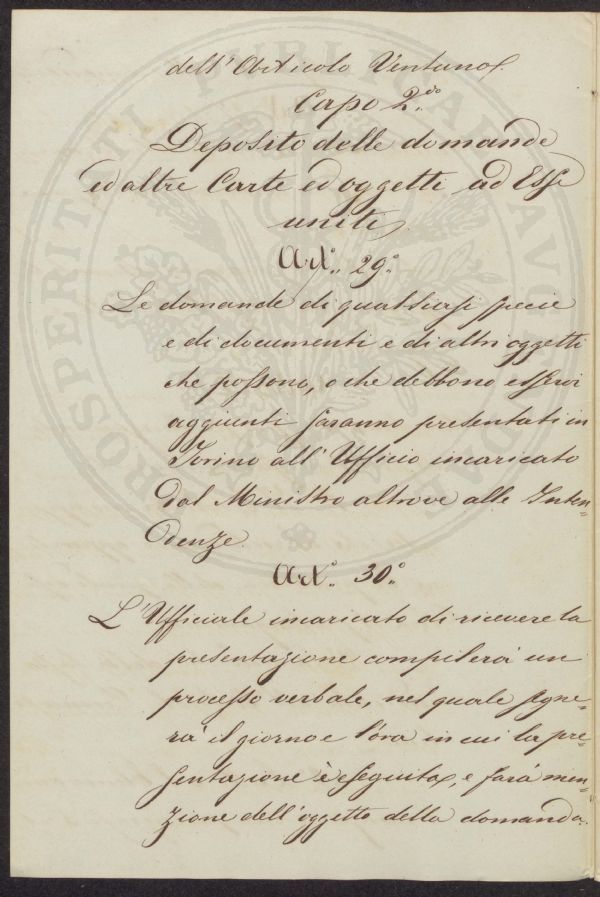 dell'Articolo Ventuno.
Capo 2.do
Deposito delle domande
ed altre Carte ed oggetti ad Esse
uniti
Art.° 29.°
Le domande di qualsiasi specie
e di documenti e di altri oggetti
che possono, o che debbono esservi
aggiunti saranno presentati in
Torino all'Ufficio incaricato
dal Ministro altrove alle Inten=
denze.
Art.° 30.°
L'Ufficiale incaricato di ricevere la
presentazione compilerà un
processo verbale, nel quale segne=
rà il giorno e l'ora in cui la pre=
sentazione è eseguita, e farà men=
zione dell'oggetto della domanda.
PROSPERITATI PUBLICAE